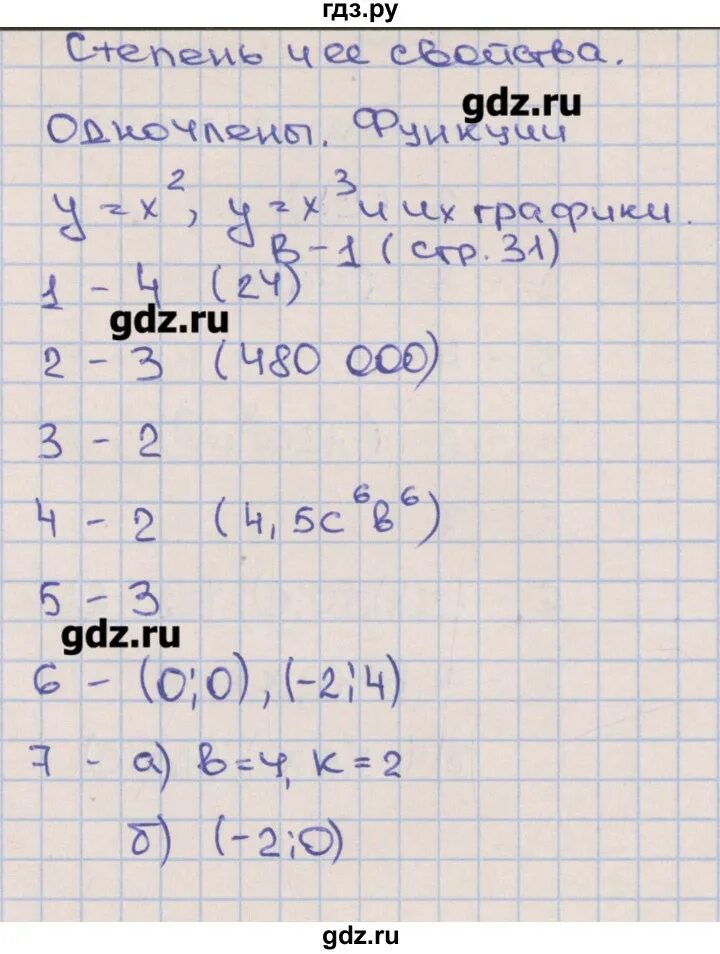 гдз.ру
Степень и ее свойства.
gdz.ru
Одночлены. Функции
y = x², y = x³ и их графики.
В - 1 (стр. 31)
1 - 4 (24)
gdz.ru
2 - 3 (480 000)
3 - 2
4 - 2 (4,5c⁶в⁶)
5 - 3
gdz.ru
6 - (0;0), (-2;4)
7 - а) в=4, к=2
б) (-2;0)
gdz.ru